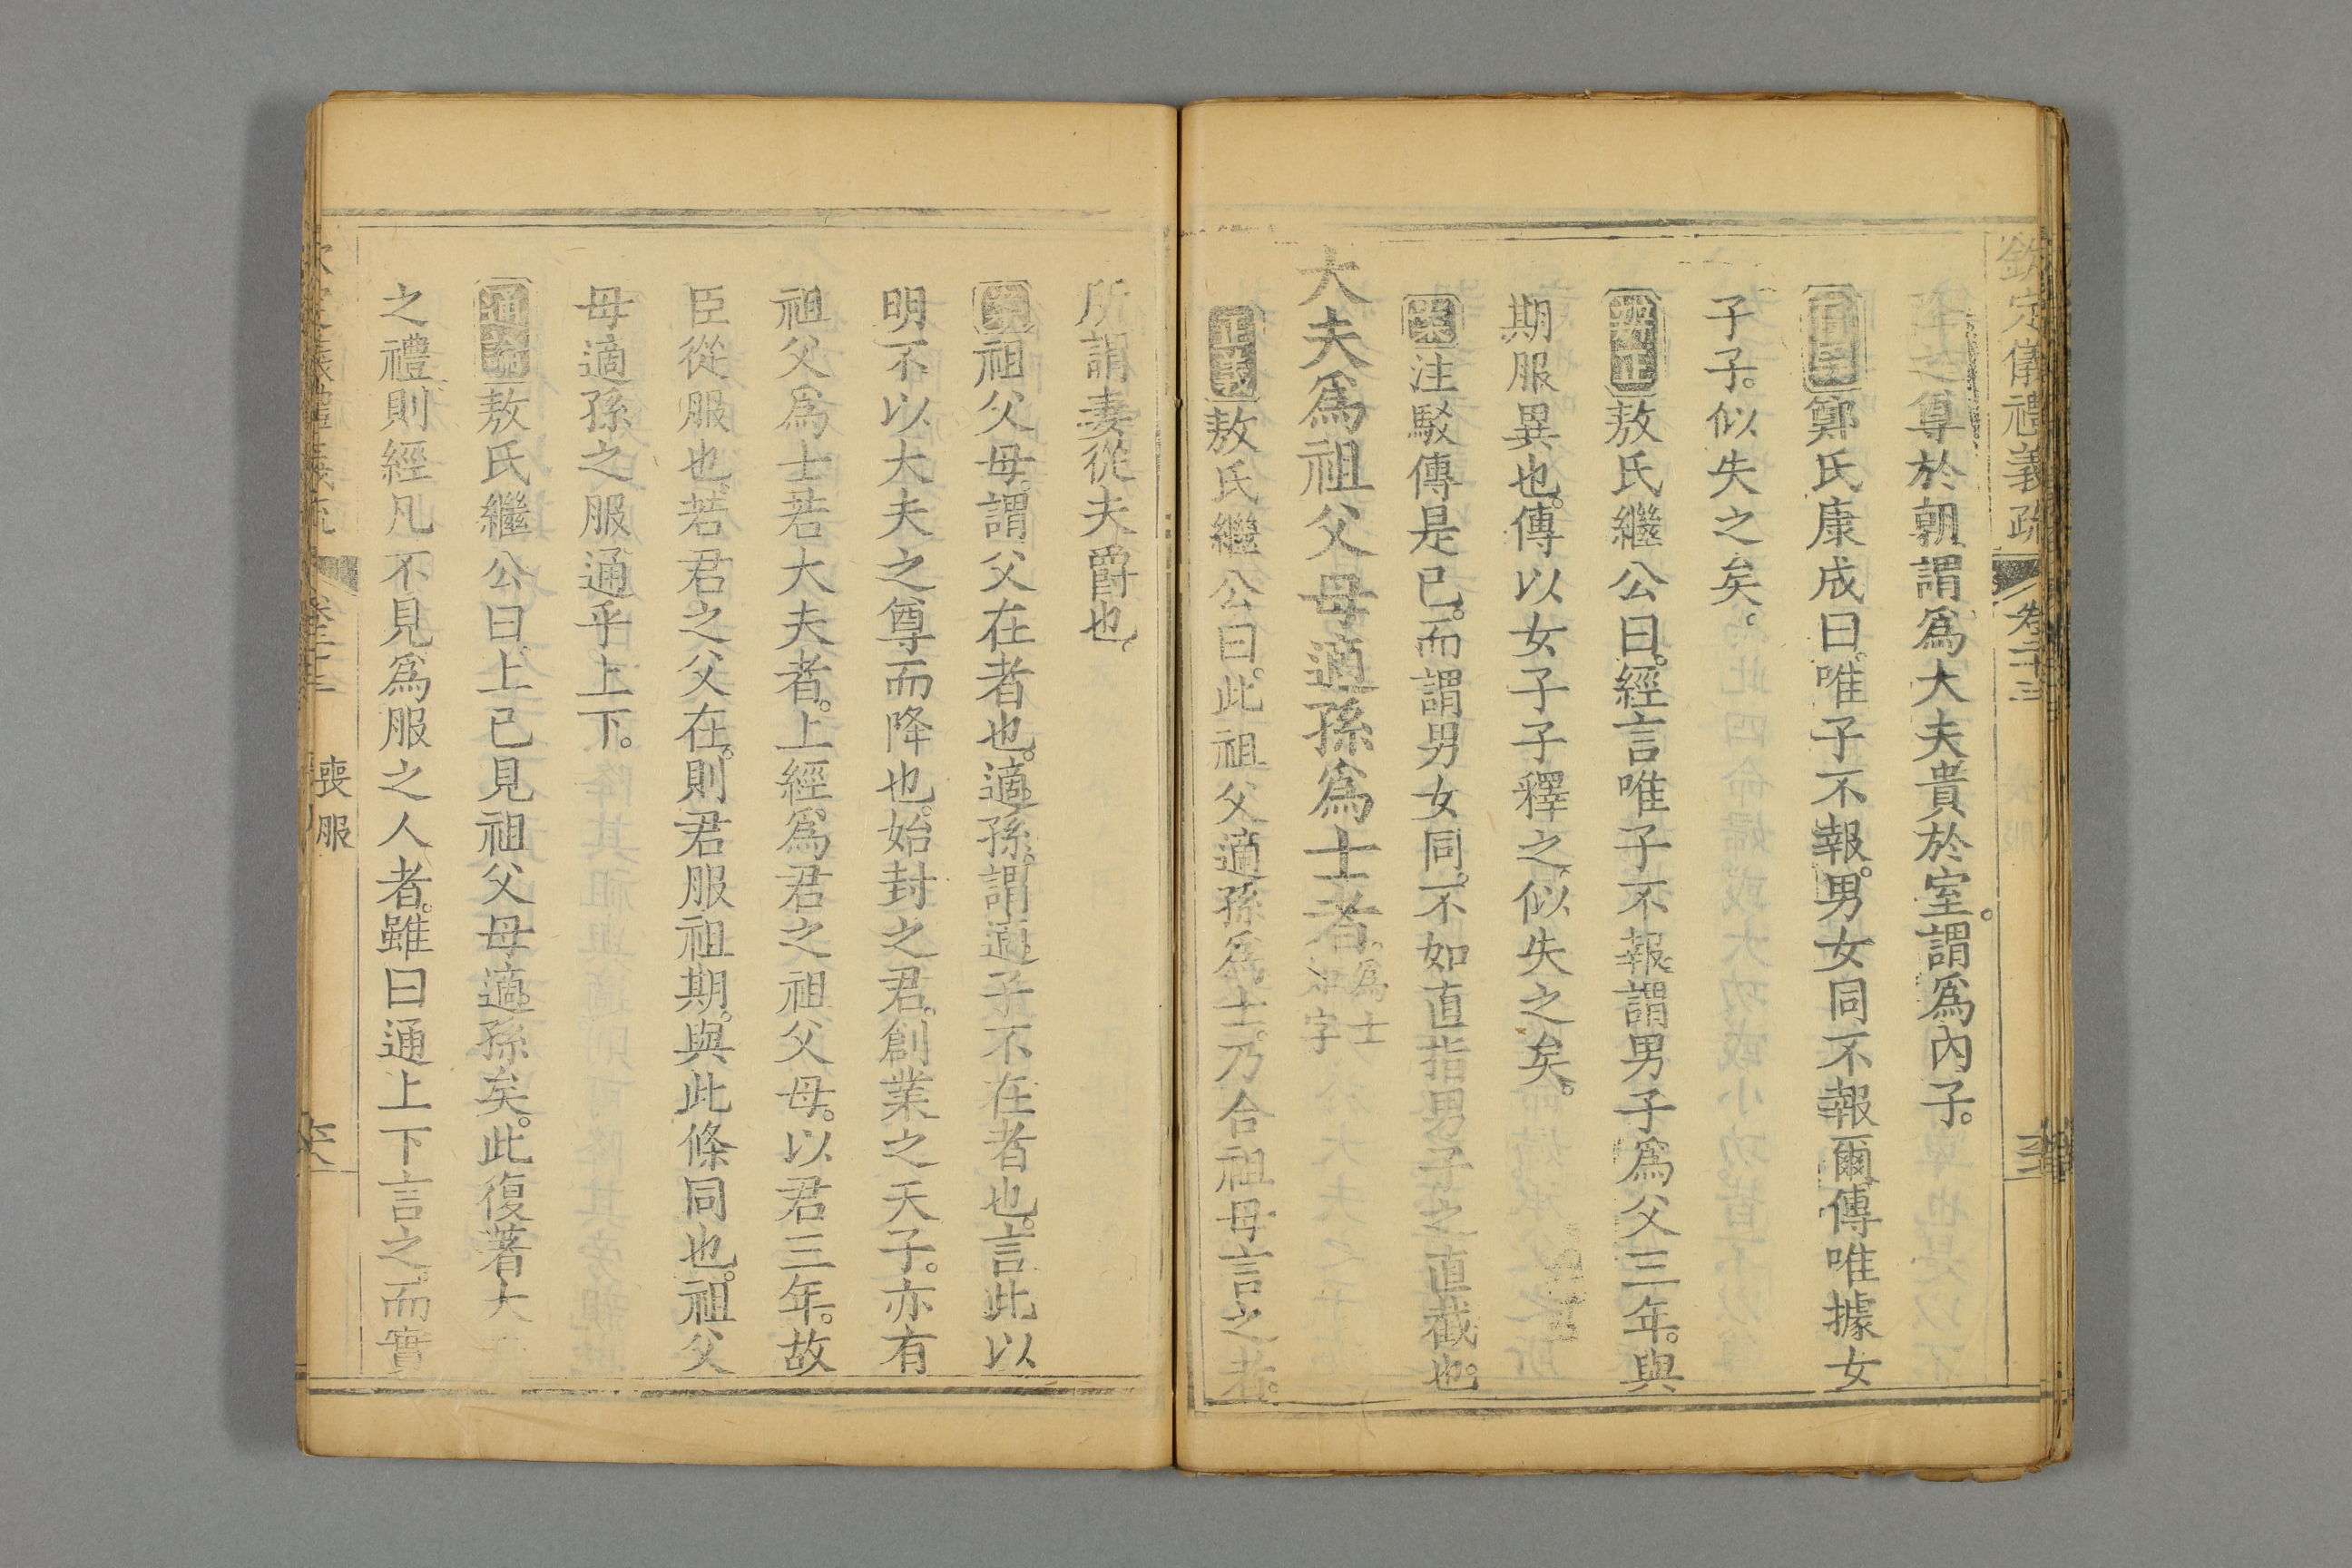 欽定儀禮義疏 卷二十三
之尊於朝謂爲大夫貴於室。謂爲内子。
鄭氏康成曰。唯子不報。男女同不報爾傳唯據女
子子。似失之矣。
辨正敖氏繼公曰。經言唯子不報謂男子爲父三年。與
期服異也。傳以女子子釋之、似失之矣。
案注駁傳是已。而謂男女同。不如直指男子之直截也。
大夫爲祖父母適孫爲士者。爲士如字
正義敖氏繼公曰。此祖父適孫爲士。乃合祖母言之者。
所謂妻從夫爵也、
案祖父母、謂父在者也。適孫。謂適子不在者也。言此以
明不以大夫之尊而降也。始封之君。創業之天子。亦有
祖父爲士若大夫者。上經、爲君之祖父母。以君三年。故
臣從服也。若君之父在。則君服祖期。與此條同也。祖父
母適孫之服通乎上下。
通論敖氏繼公曰、上已見祖父母適孫矣。此復著大
之禮、則經凡不見爲服之人者。雖曰通上下言之、而實
喪服